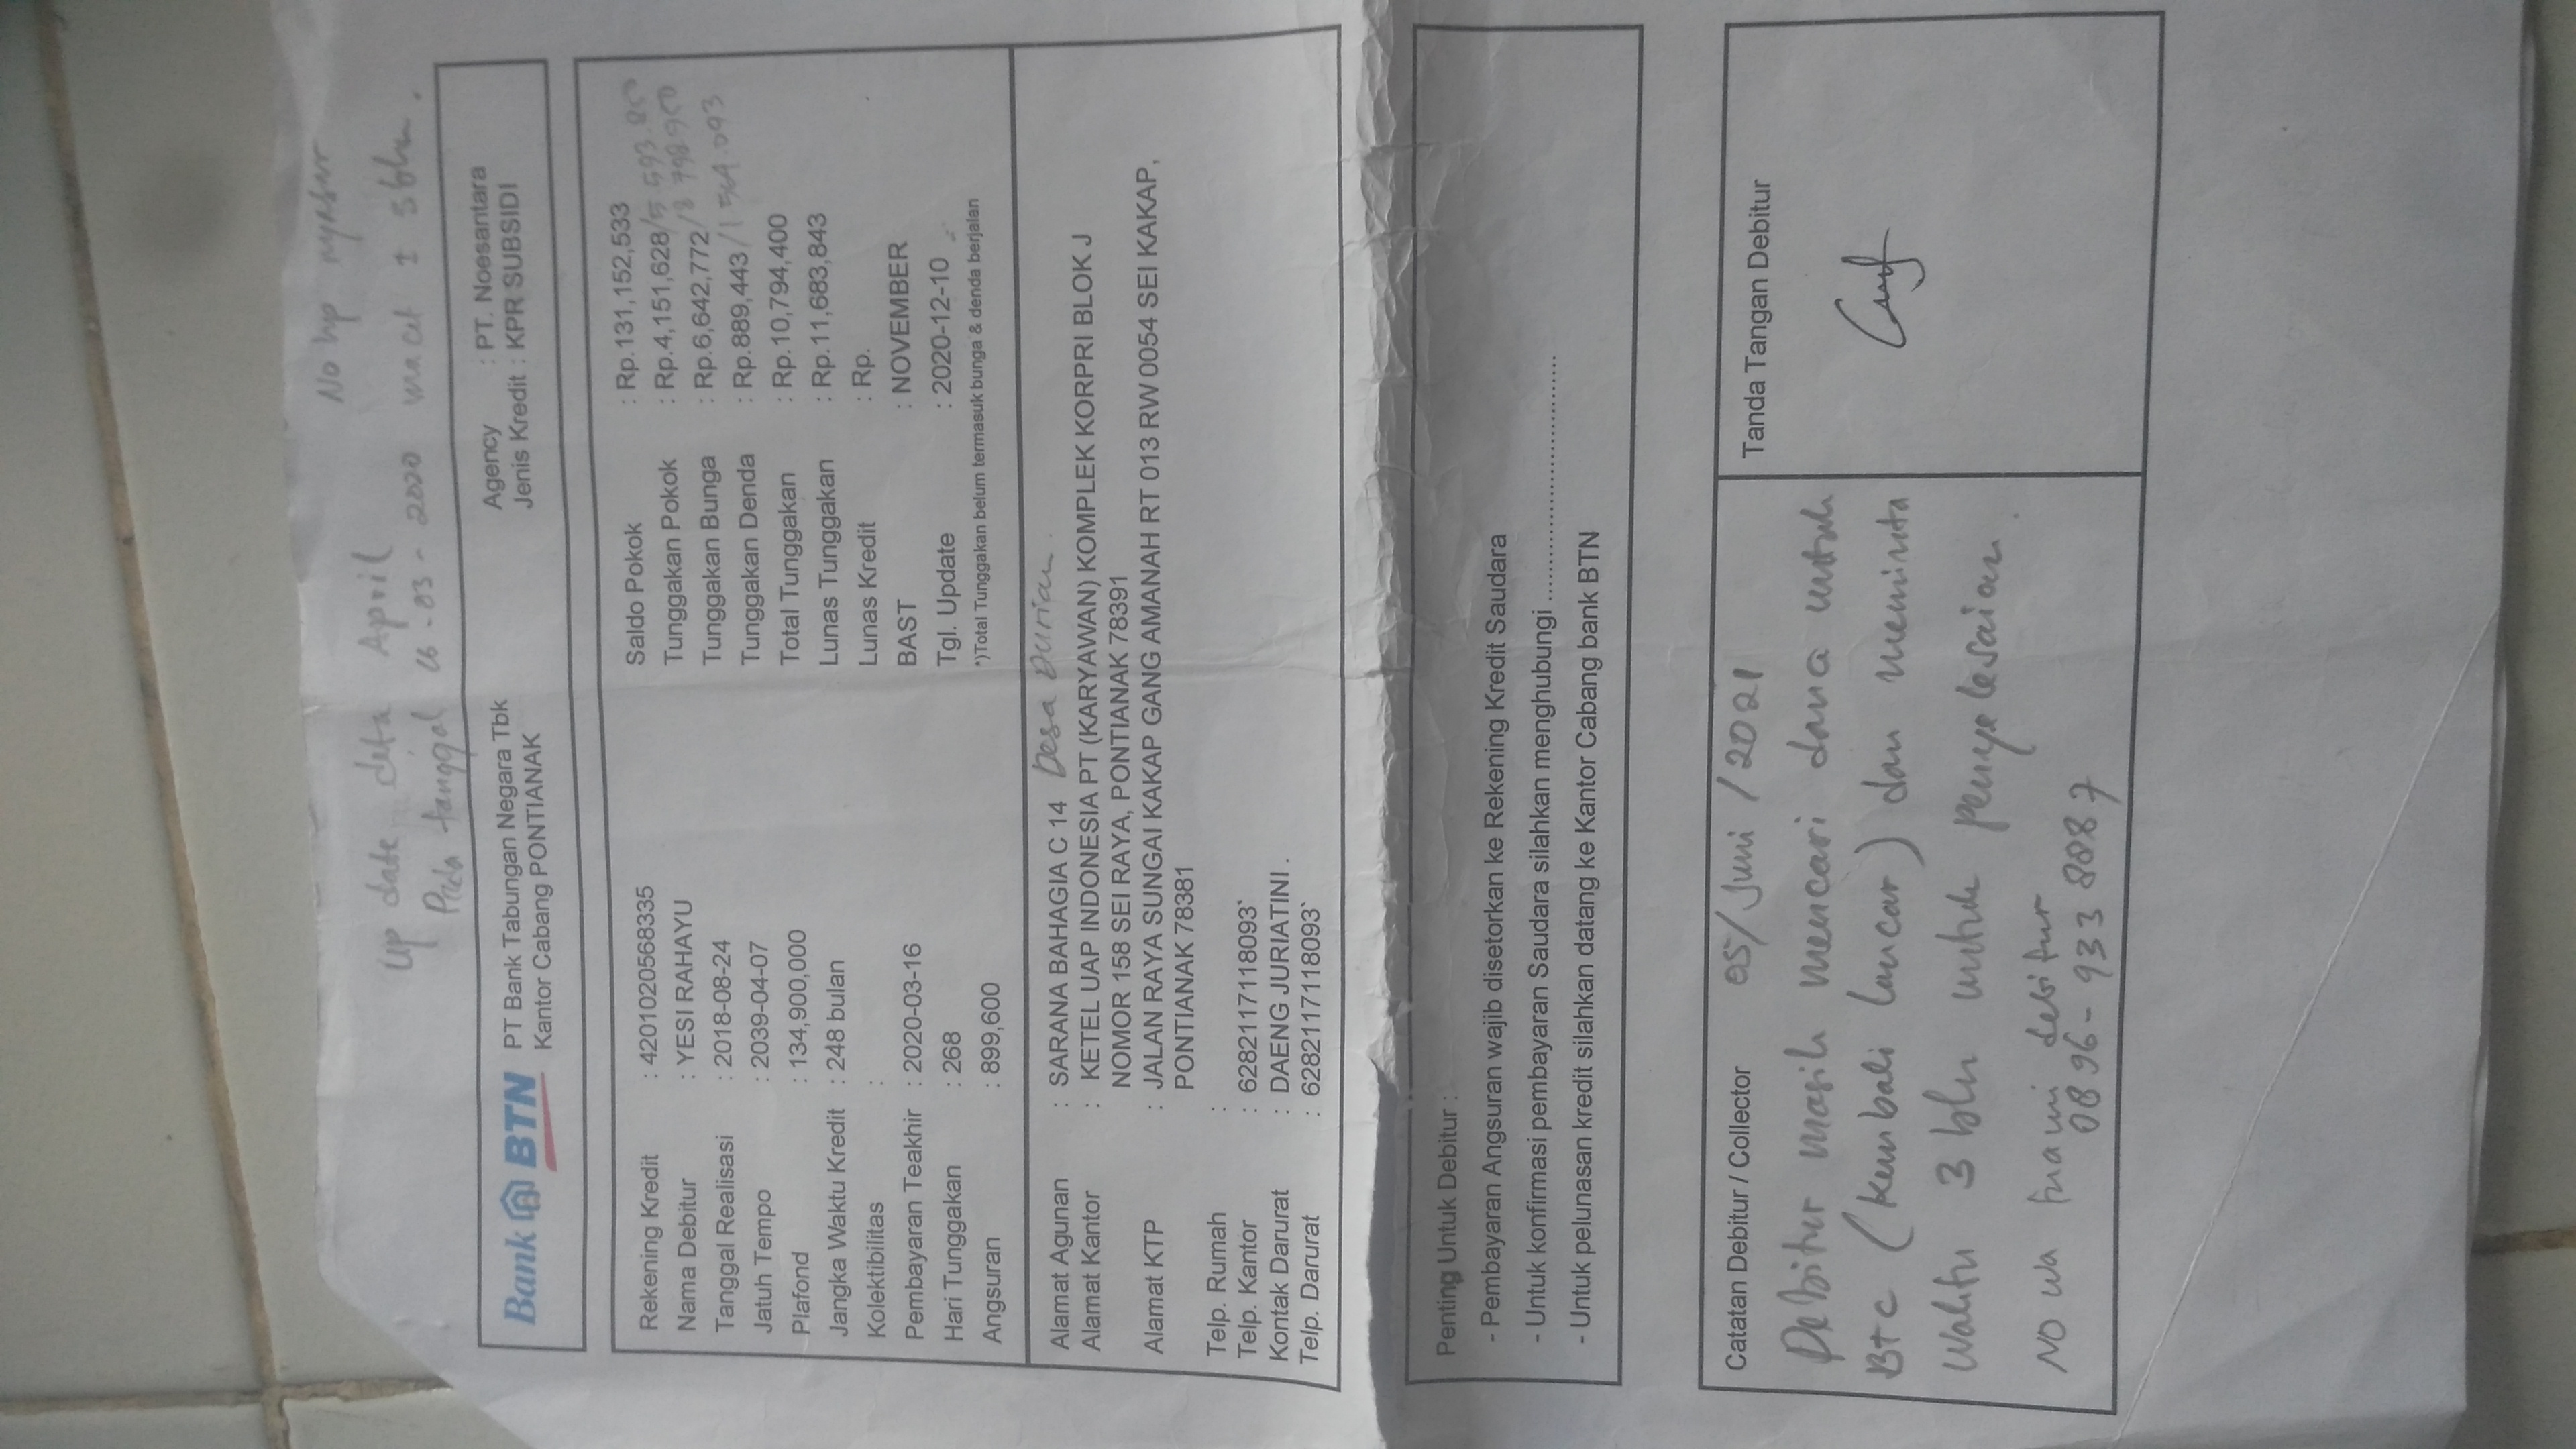 No hp
Up date data April
Pada tanggal 16-03-2020 macet 1 bln.
Bank BTN
PT Bank Tabungan Negara Tbk
Kantor Cabang PONTIANAK
Agency : PT. Noesantara
Jenis Kredit : KPR SUBSIDI
Rekening Kredit : 4201020568335
Nama Debitur : YESI RAHAYU
Tanggal Realisasi : 2018-08-24
Jatuh Tempo : 2039-04-07
Plafond : 134,900,000
Jangka Waktu Kredit : 248 bulan
Kolektibilitas :
Pembayaran Teakhir : 2020-03-16
Hari Tunggakan : 268
Angsuran : 899,600
Saldo Pokok : Rp.131,152,533
Tunggakan Pokok : Rp.4,151,628
Tunggakan Bunga : Rp.6,642,772
Tunggakan Denda : Rp.889,443 / 1 564.093
Total Tunggakan : Rp.10,794,400
Lunas Tunggakan : Rp.11,683,843
Lunas Kredit : Rp.
BAST : NOVEMBER
Tgl. Update : 2020-12-10
*)Total Tunggakan belum termasuk bunga & denda berjalan
Alamat Agunan : SARANA BAHAGIA C 14 Desa Durian.
Alamat Kantor : KETEL UAP INDONESIA PT (KARYAWAN) KOMPLEK KORPRI BLOK J
NOMOR 158 SEI RAYA, PONTIANAK 78391
Alamat KTP : JALAN RAYA SUNGAI KAKAP GANG AMANAH RT 013 RW 0054 SEI KAKAP,
PONTIANAK 78381
Telp. Rumah :
Telp. Kantor : 6282117118093`
Kontak Darurat : DAENG JURIATINI .
Telp. Darurat : 6282117118093`
Penting Untuk Debitur :
- Pembayaran Angsuran wajib disetorkan ke Rekening Kredit Saudara
- Untuk konfirmasi pembayaran Saudara silahkan menghubungi ........................................
- Untuk pelunasan kredit silahkan datang ke Kantor Cabang bank BTN
Catatan Debitur / Collector 05/Juni/2021
Debitur masih mencari dana untuk
Btc (kembali lancar) dan meminta
waktu 3 bln untuk penyelesaian.
No wa suami debitur
0896-933 8087
Tanda Tangan Debitur